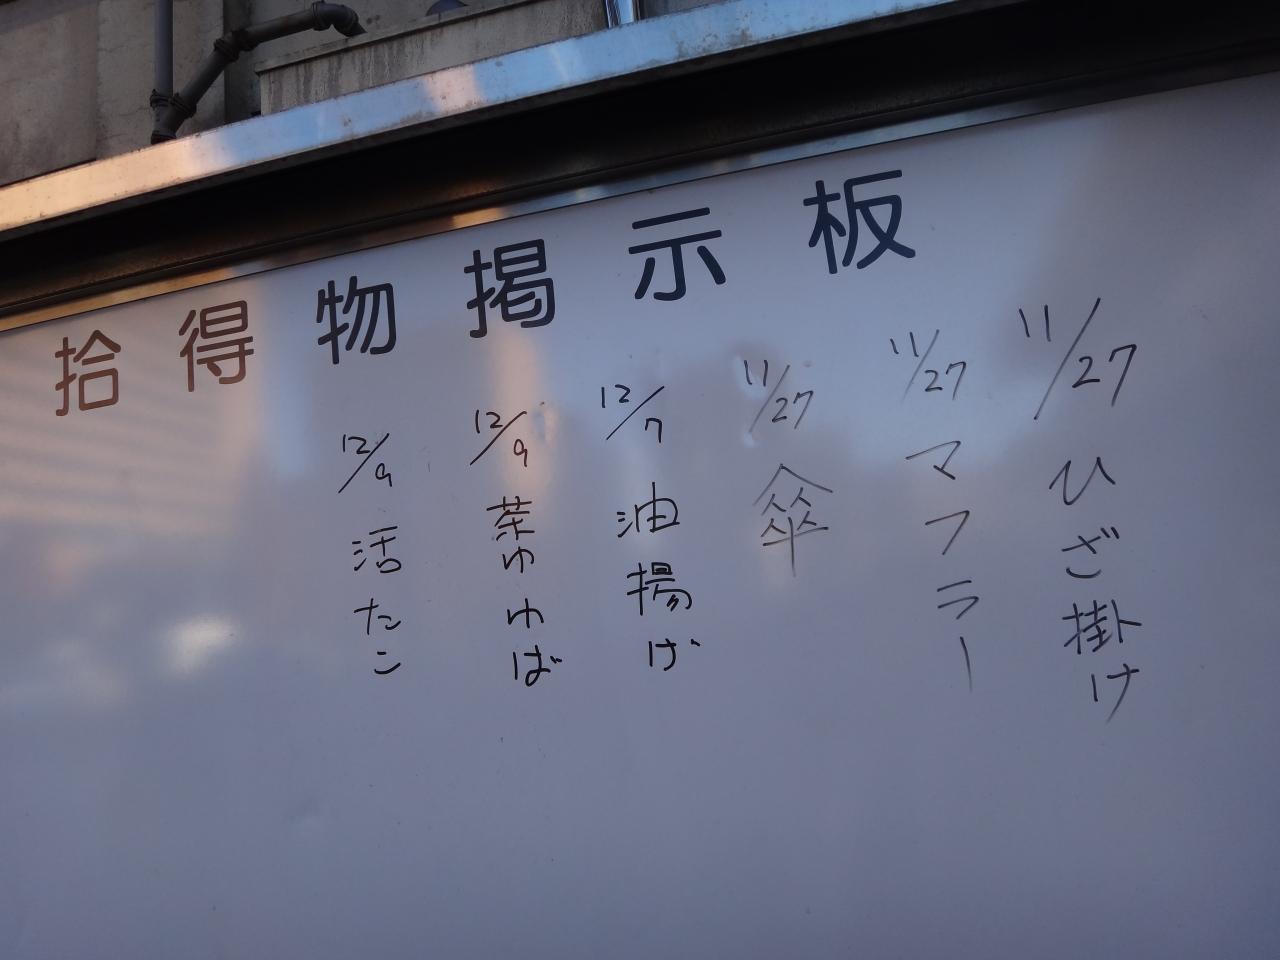 拾得物掲示板
11/27 ひざ掛け
11/27 マフラー
11/27 傘
12/7 油揚げ
12/9 茶ゆゆば
12/9 活たこ